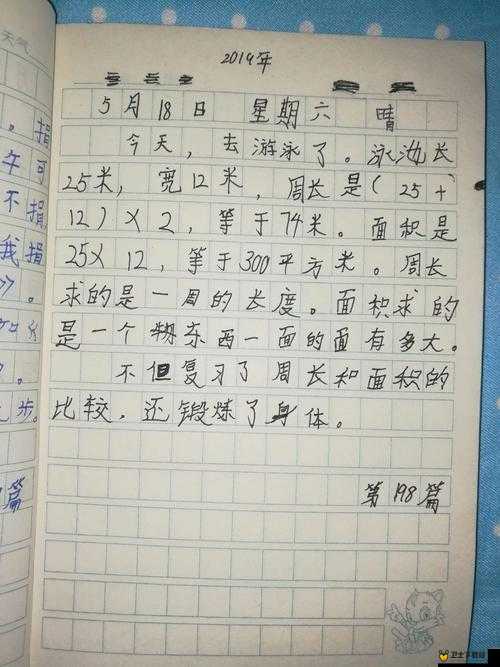 天气
2019年
5月18日 星期六 晴
今天，去游泳了。泳池长
25米，宽12米，周长是（25+
12）×2，等于74米。面积是
25×12，等于300平方米。周长
求的是一周的长度。面积求的
是一个物东西一面的面有多大。
不但复习了周长和面积的
比较，还锻炼了身体。
第198篇
。捐
午可
不捐，
我捐
》。
。
步。
篇
卫士下载站